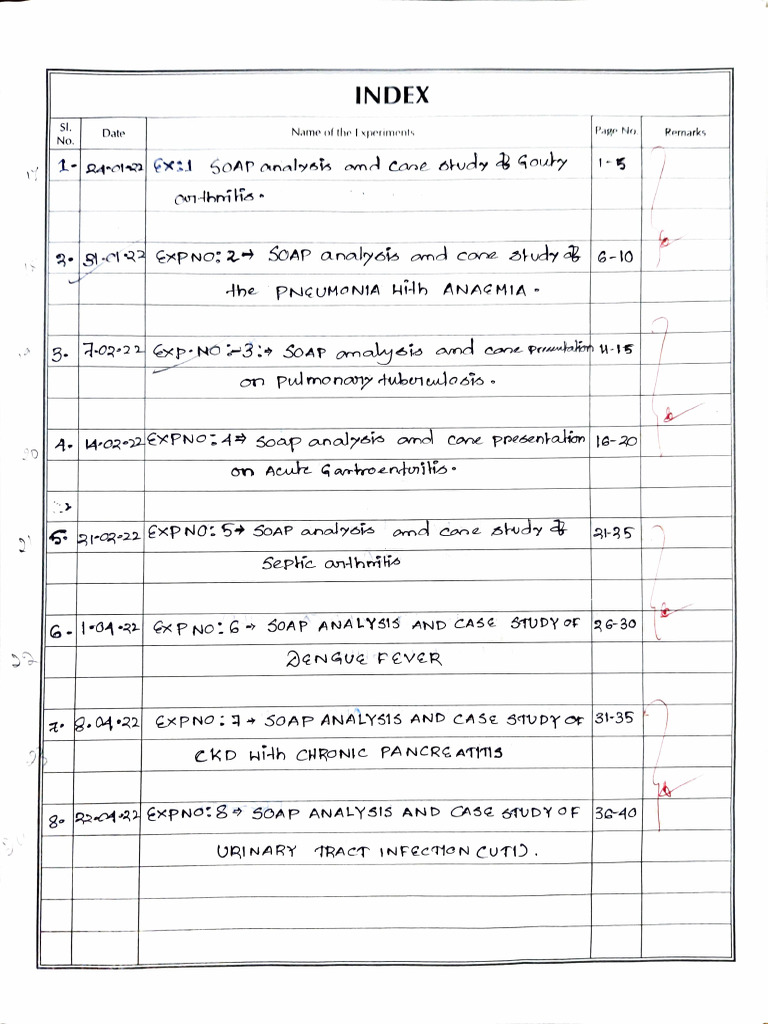 INDEX
Sl. No. Date Name of the Experiments Page No. Remarks
1. 24.01.22 EX:1 SOAP analysis and case study of Gouty 1-5
arthritis.
2. 31.01.22 EXPNO:2→ SOAP analysis and case study of 6-10
the PNEUMONIA with ANAEMIA.
3. 7.02.22 EXP.NO:-3:→ SOAP analysis and case presentation 11-15
on pulmonary tuberculosis.
4. 14.02.22 EXPNO:4⇒ Soap analysis and case presentation 16-20
on Acute Gastroenteritis.
5. 21-02-22 EXPNO:5→ SOAP analysis and case study of 21-25
Septic arthritis
6. 1.04.22 EXPNO:6→ SOAP ANALYSIS AND CASE STUDY OF 26-30
DENGUE FEVER
7. 8.04.22 EXPNO:7→ SOAP ANALYSIS AND CASE STUDY OF 31-35
CKD with CHRONIC PANCREATITIS
8. 22.04.22 EXPNO:8→ SOAP ANALYSIS AND CASE STUDY OF 36-40
URINARY TRACT INFECTION (UTI).